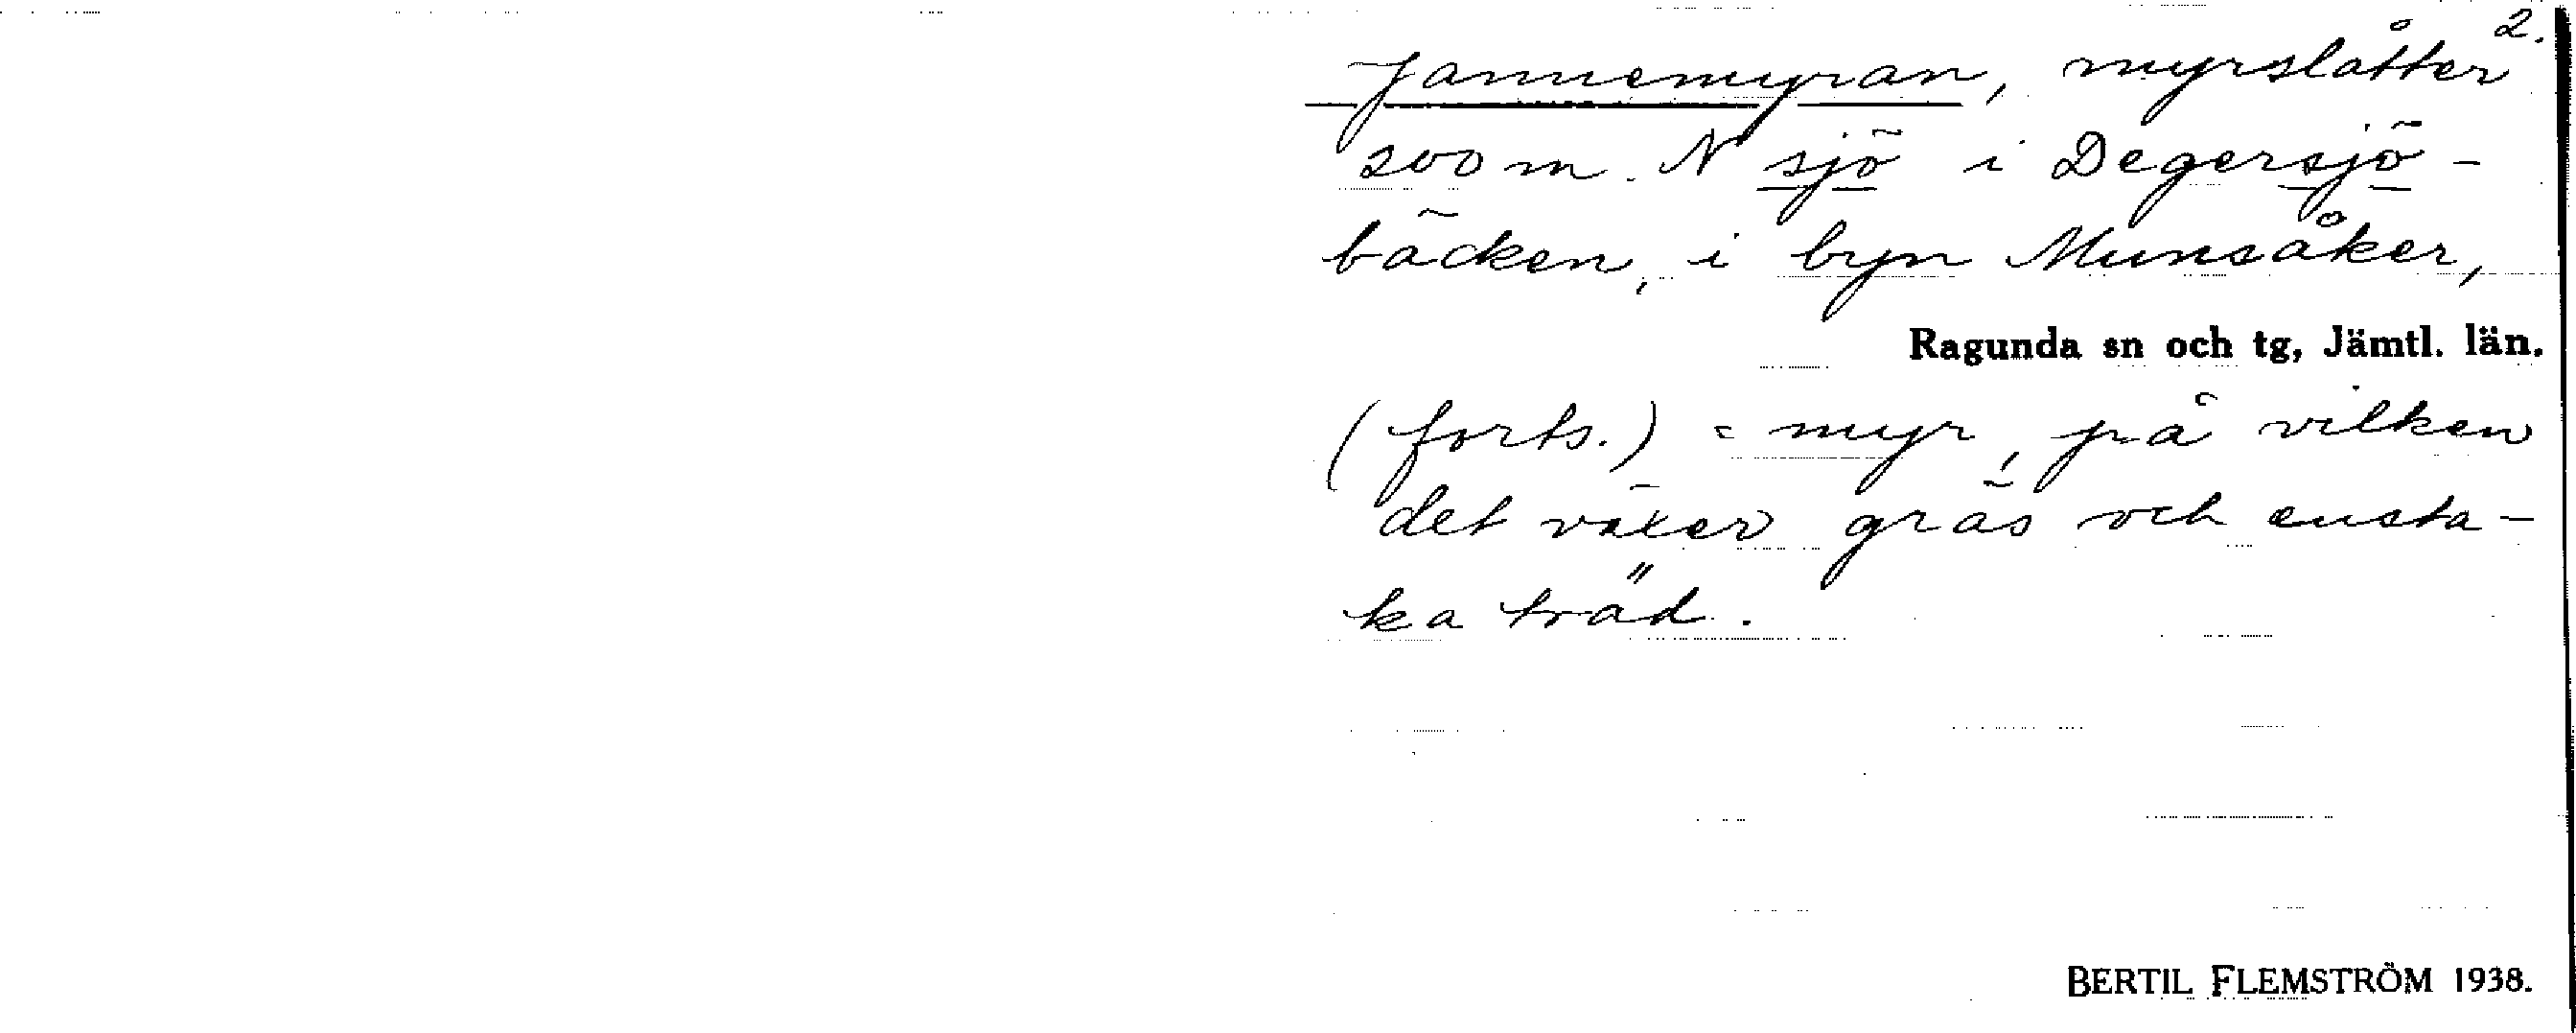 2.
Jannemyran, myrslåtter
200 m. N sjö i Degersjö-
bäcken, i byn Munsåker,
Ragunda sn och tg, Jämtl. län.
(forts.) = myr, på vilken
det växer gräs och ensta-
ka träd.
BERTIL FLEMSTRÖM 1938.